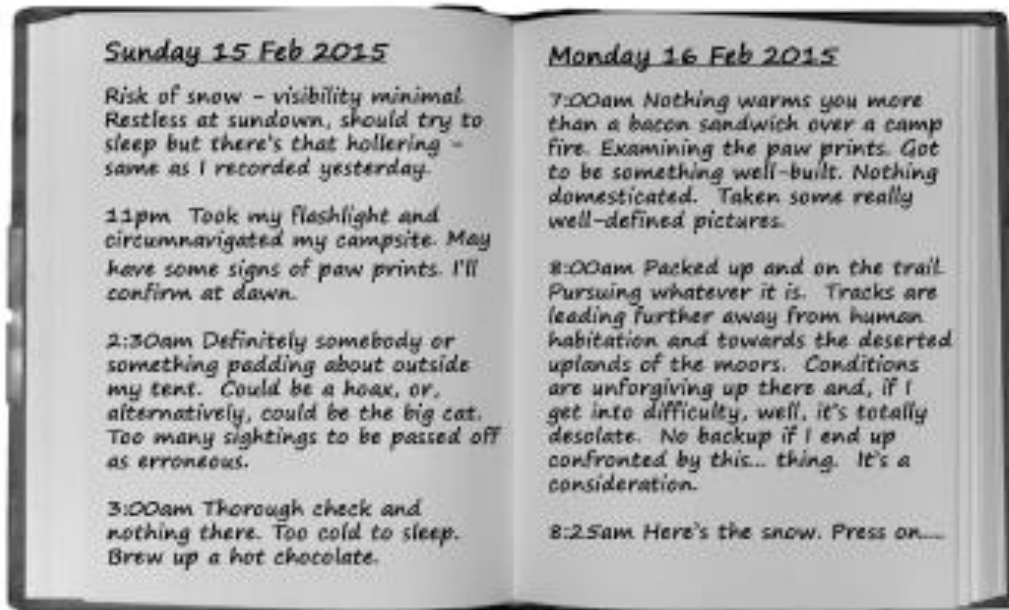 Sunday 15 Feb 2015
Risk of snow - visibility minimal.
Restless at sundown, should try to
sleep but there's that hollering -
same as I recorded yesterday.
11pm Took my flashlight and
circumnavigated my campsite. May
have some signs of paw prints. I'll
confirm at dawn.
2:30am Definitely somebody or
something padding about outside
my tent. Could be a hoax, or,
alternatively, could be the big cat.
Too many sightings to be passed off
as erroneous.
3:00am Thorough check and
nothing there. Too cold to sleep.
Brew up a hot chocolate.
Monday 16 Feb 2015
7:00am Nothing warms you more
than a bacon sandwich over a camp
fire. Examining the paw prints. Got
to be something well-built. Nothing
domesticated. Taken some really
well-defined pictures.
8:00am Packed up and on the trail.
Pursuing whatever it is. Tracks are
leading further away from human
habitation and towards the deserted
uplands of the moors. Conditions
are unforgiving up there and, if I
get into difficulty, well, it's totally
desolate. No backup if I end up
confronted by this... thing. It's a
consideration.
8:25am Here's the snow. Press on....